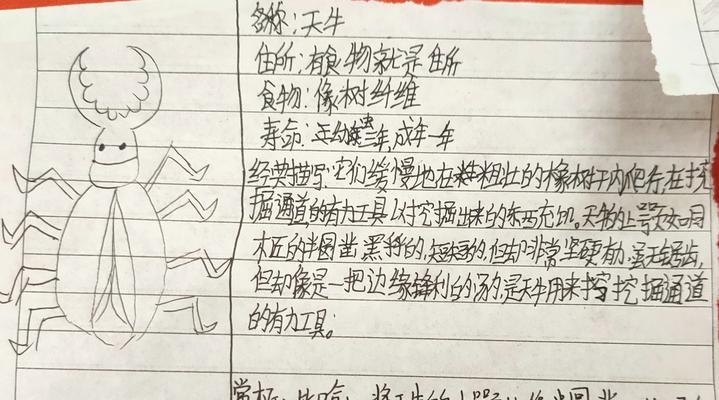 名称：天牛
住所：有食物就是住所
食物：像树纤维
寿命：年幼虫三年，成年一年
经典描写：它们缓慢地在粗壮的橡树干内爬行，在挖
掘通道的有力工具以挖掘出来的东西充饥。天牛的上颚如同
木匠的半圆凿，黑乎的，短短的，但却非常坚硬有力，虽无锯齿，
但却像是一把边缘锋利的汤勺，是天牛用来挖掘通道
的有力工具。
赏析：比喻，将天牛的上颚比作半圆凿